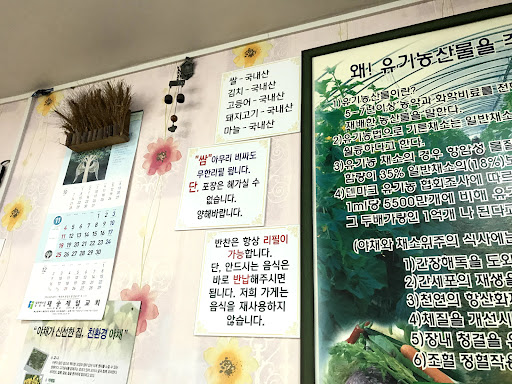 쌀 - 국내산
김치 - 국내산
고등어 - 국내산
돼지고기 - 국내산
마늘 - 국내산
"쌈"아무리 비싸도
무한리필 됩니다.
단, 포장은 헤가실 수
없습니다.
양해바랍니다.
반찬은 항상 리필이
가능합니다.
단, 안드시는 음식은
바로 반납해주시면
됩니다. 저희 가게는
음식을 재사용하지
않습니다.
11
"야채가 신선한 집, 친환경 야채"
왜! 유기농산물을
1)유기농산물이란?
5~7년이상 농약과 화학비료를
재배한 농산물을 말한다.
2)유기농법으로 기른채소는 일반채소
월등하다고 한다.
3)유기농 채소의 경우 항암성 물질
함량이 35% 일반채소의(18%)보
4)덴마크 유기농 협회조사에 따르
1ml당 5500만개에 비에 유
그 두배가량인 1억개나 된다고
(야채와 채소위주의 식사에는
1)간장해독을 도와
2)간세포의 재생을
3)천연의 항산화제
4)체질을 개선시
5)장내 청결을 유
6)조혈 정혈작용